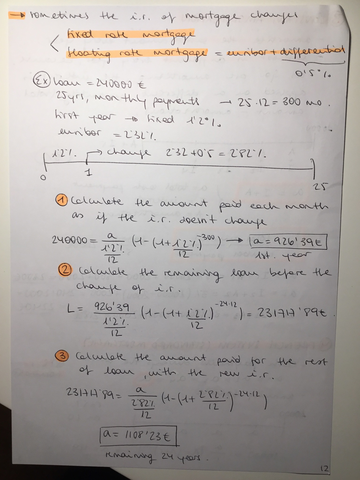 → sometimes the i.r. of mortgage changes
< fixed rate mortgage
floating rate mortgage = euribor + differential
0'5%.
Ex loan = 240000 €
25 yrs, monthly payments → 25·12 = 300 mo.
first year → fixed 1'2%.
euribor = 2'32%.
1'2% → change 2'32+0'5 = 2'82%.
0 1 25
① Calculate the amount paid each month
as if the i.r. doesn't change
240000 = a / (1'2%/12) (1-(1+1'2%/12)^-300) → a = 926'39€
1st. year
② Calculate the remaining loan before the
change of i.r.
L = 926'39 / (1'2%/12) (1-(1+1'2%/12)^-24·12) = 231717'89€.
③ Calculate the amount paid for the rest
of loan, with the new i.r.
231717'89 = a / (2'82%/12) (1-(1+2'82%/12)^-24·12)
a = 1108'23€
remaining 24 years.
12